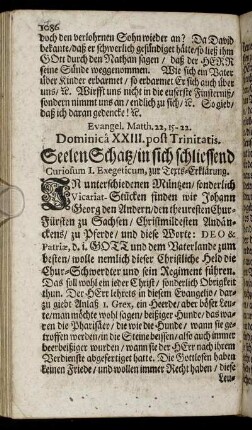 1086
doch den verlohrnen Sohn wieder an? Da David
bekante / daß er schwerlich gesündiget hätte / so ließ ihm
GOtt durch den Nathan sagen / daß der HERR
seine Sünde weggenommen. Wie sich ein Vater
über Kinder erbarmet / so erbarmet Er sich auch über
uns / ⁊c. Wirfft uns nicht in die euserste Finsterniß /
sondern nimmt uns an / endlich zu sich / ⁊c. So gieb /
daß ich daran gedencke! ⁊c.
Evangel. Matth. 22, 15-22.
Dominicâ XXIII. post Trinitatis.
Seelen Schatz / in sich schliessend
Curiosum I. Exegeticum, zur Texts-Erklärung.
IN unterschiedenen Müntzen / sonderlich
Vicariat-Stücken finden wir Johann
Georg den Andern / den theuresten Chur-
Fürsten zu Sachsen / Christmildesten Andän-
ckens / zu Pferde / und diese Worte: DEO &
Patriæ, d. i. GOTT und dem Vaterlande zum
besten / wolle nemlich dieser Christliche Held die
Chur-Schwerdter und sein Regiment führen.
Das soll wohl ein ieder Christ / sonderlich Obrigkeit
thun. Der HErr lehrets in diesem Evangelio / da-
zu giebt Anlaß 1. Grex, ein Heerde / aber böser Leu-
te / man möchte wohl sagen / beißiger Hunde / das wa-
ren die Pharisäer / die wie die Hunde / wann sie ge-
troffen werden / in die Steine beissen / alse auch immer
beerbeißiger wurden / wann sie der HErr nach ihrem
Verdienste abgefertiget hatte. Die Gottlosen haben
keinen Friede / und wollen immer Recht haben / diese
Leu-